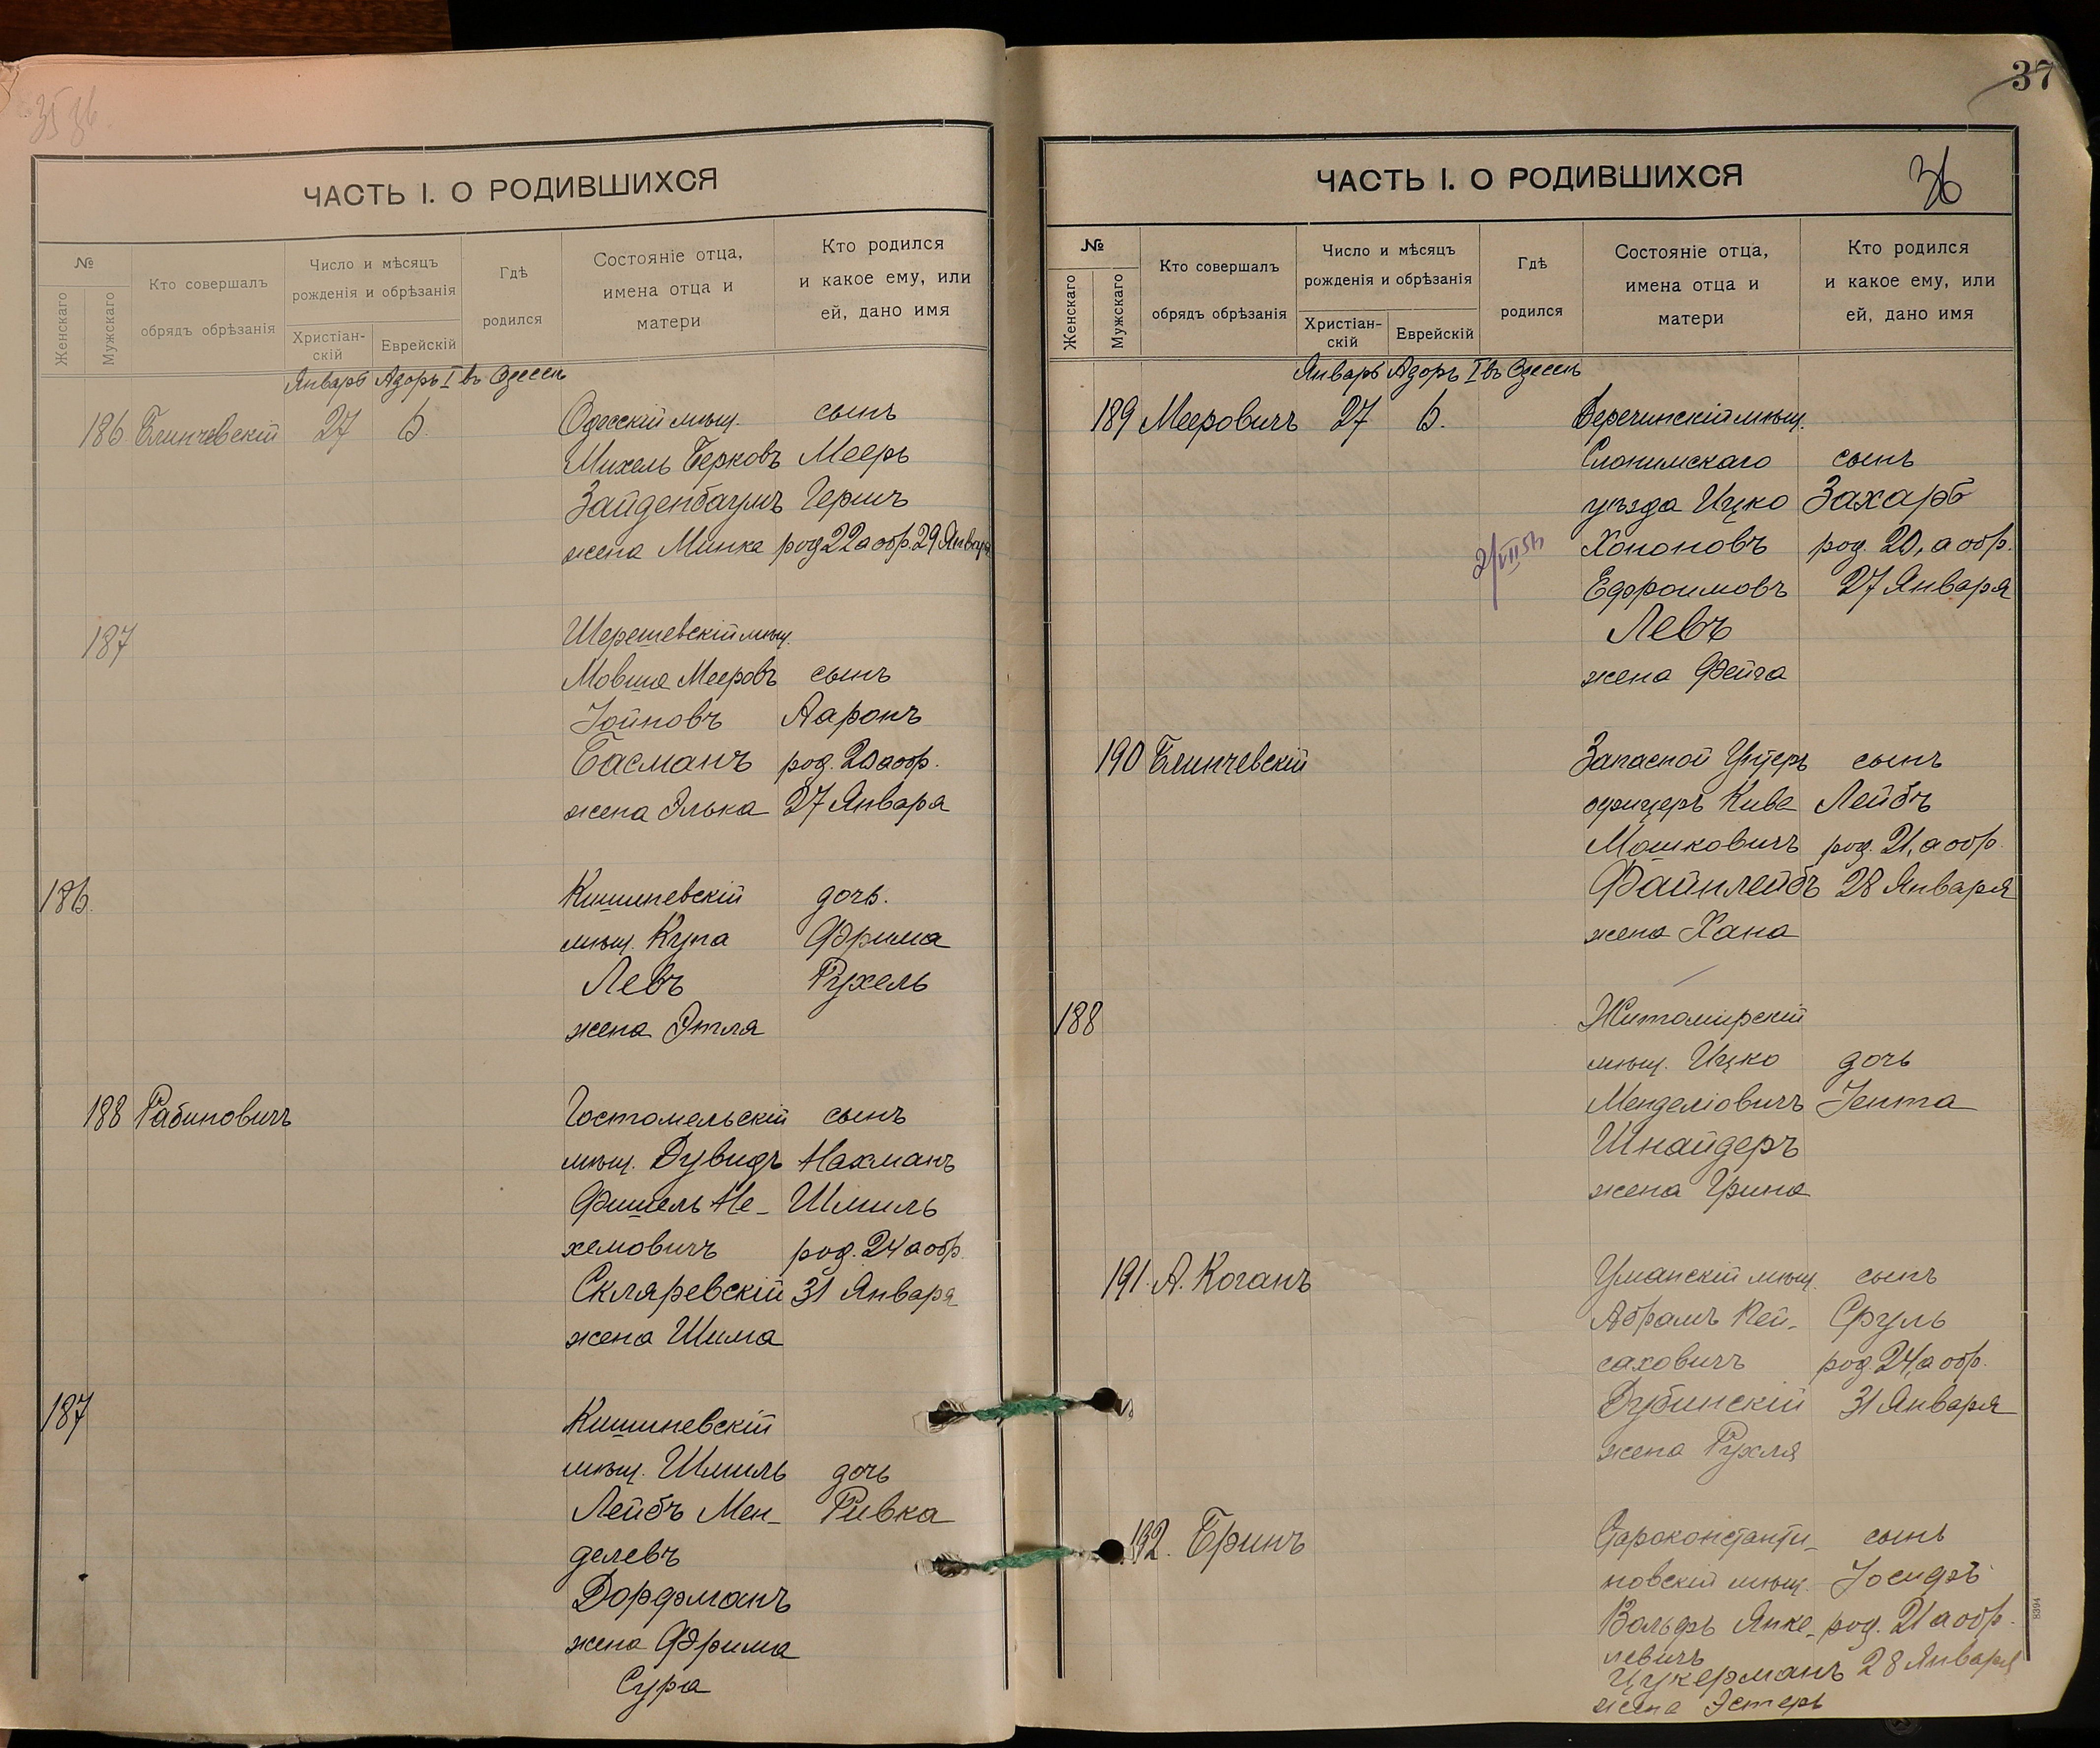 35 36
ЧАСТЬ I. О РОДИВШИХСЯ
№
Женскаго
Мужскаго
Кто совершалъ
обрядъ обрѣзанія
Число и мѣсяцъ
рожденія и обрѣзанія
Христіан-
скій
Еврейскій
Гдѣ
родился
Состояніе отца,
имена отца и
матери
Кто родился
и какое ему, или
ей, дано имя
Январь Адоръ I въ Одессѣ
186 Блинчевскій 27 6. Одесскій мѣщ. сынъ
Михель Берковъ Мееръ
Зайденбаумъ Гершъ
жена Минка род 22 а обр. 29 Января
187 Шерешевскій мѣщ.
Мовша Мееровъ сынъ
Іойновъ Ааронъ
Басманъ род. 20 а обр.
жена Элька 27 Января
186. Кишиневскій дочь.
мѣщ. Куна Фрима
Левъ Рухель
жена Этля
188 Рабиновичъ Гостомельскій сынъ
мѣщ. Дувидъ Нахманъ
Фишель Не- Шмиль
хемовичъ род. 24 а обр.
Скляревскій 31 Января
жена Шима
187 Кишиневскій
мѣщ. Шмиль дочь
Лейбъ Мен- Ривка
делевъ
Дорфманъ
жена Фрима
Сура
37
36
ЧАСТЬ I. О РОДИВШИХСЯ
№
Женскаго
Мужскаго
Кто совершалъ
обрядъ обрѣзанія
Число и мѣсяцъ
рожденія и обрѣзанія
Христіан-
скій
Еврейскій
Гдѣ
родился
Состояніе отца,
имена отца и
матери
Кто родился
и какое ему, или
ей, дано имя
Январь Адоръ I въ Одессѣ
189 Мееровичъ 27 6. Деречинскій мѣщ.
Слонимскаго сынъ
уѣзда Ицко Захаръ
Хононовъ род. 20, а обр.
Ефроимовъ 27 Января
Левъ
жена Фейга
190 Блинчевскій Запасной Унтеръ сынъ
офицеръ Кива Лейбъ
Мошковичъ род. 21, а обр.
Файнлейбъ 28 Января
жена Хана
188 Житомирскій
мѣщ. Ицко дочь
Менделіовичъ Іента
Шнайдеръ
жена Грина
191. А. Коганъ Уманскій мѣщ. сынъ
Абрамъ Пей- Сруль
саховичъ род. 24, а обр.
Дубинскій 31 Января
жена Рухля
192. Бринъ Староконстанти- сынъ
новскій мѣщ. Іосифъ
Вольфъ Янке- род. 21 а обр.
левичъ
Цукерманъ 28 Января
жена Эстеръ
8394